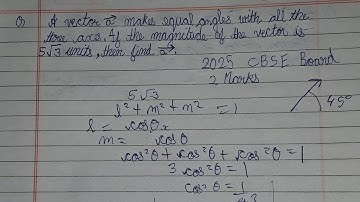 Q A vector a⃗ makes equal angles with all the
three axes. If the magnitude of the vector is
5√3 units, then find a⃗.
2025 CBSE Board
2 Marks
5√3
l² + m² + n² = 1
l = cosθx
m = cosθ
45°
cos²θ + cos²θ + cos²θ = 1
3 cos²θ = 1
cos²θ = 1